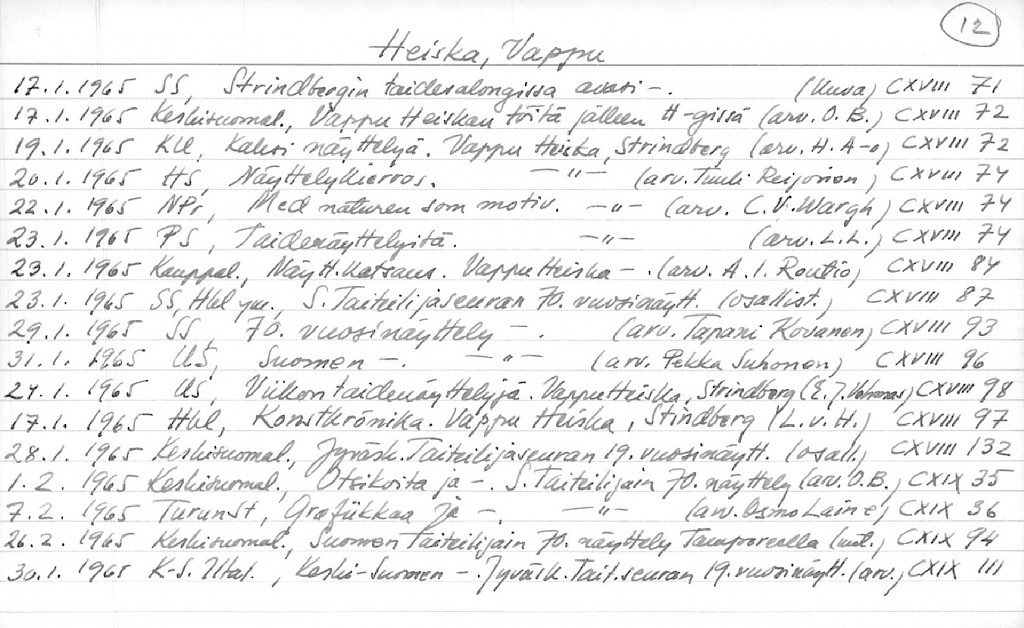 12
Heiska, Vappu
17.1.1965 SS, Strindbergin taidesalongissa avasi -. (kuva) CXVIII 71
17.1.1965 Keskisuomal., Vappu Heiskan töitä jälleen H-gissä (arv. O.B.) CXVIII 72
19.1.1965 KU, Kaksi näyttelyä. Vappu Heiska, Strindberg (arv. H. A-o) CXVIII 72
20.1.1965 HS, Näyttelykierros. -"- (arv. Tuuli Reijonen) CXVIII 74
22.1.1965 NPr, Med naturen som motiv. -"- (arv. C.V. Wargh) CXVIII 74
23.1.1965 PS, Taidenäyttelyitä. -"- (arv. L.L.) CXVIII 74
23.1.1965 Kauppal., Näytt.katsaus. Vappu Heiska -. (arv. A.I. Routio) CXVIII 84
23.1.1965 SS, Hbl ym., S. Taiteilijaseuran 70. vuosinäytt. (osallist.) CXVIII 87
29.1.1965 SS, 70. vuosinäyttely -. (arv. Tapani Kovanen) CXVIII 93
31.1.1965 US, Suomen -. -"- (arv. Pekka Suhonen) CXVIII 96
24.1.1965 US, Viikon taidenäyttelyjä. Vappu Heiska, Strindberg (E.J. Vehmas) CXVIII 98
17.1.1965 Hbl, Konstkrönika. Vappu Heiska, Stindberg (L.v.H.) CXVIII 97
28.1.1965 Keskisuomal., Jyväsk. Taiteilijaseuran 19. vuosinäytt. (osall.) CXVIII 132
1.2.1965 Keskisuomal., Otsikoita ja -. S. Taiteilijain 70. näyttely (arv. O.B.) CXIX 35
7.2.1965 TurunSt, Grafiikkaa ja -. -"- (arv. Osmo Laine) CXIX 36
26.2.1965 Keskisuomal., Suomen Taiteilijain 70. näyttely Tampereella (uut.) CXIX 94
30.1.1965 K-S. Iltal., Keski-Suomen -. Jyväsk. Tait.seuran 19. vuosinäytt. (arv.) CXIX 111